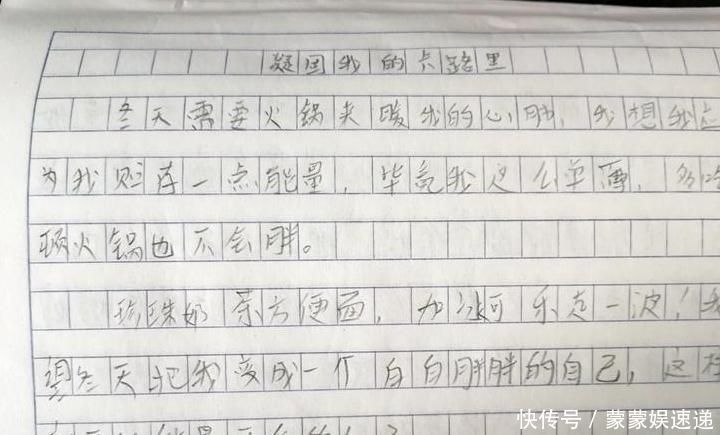 凝固我的卡路里
冬天需要火锅来暖我的心肺,我想我应
为我贮存一点能量,毕竟我这么单薄,多吃
顿火锅也不会胖。
珍珠奶茶方便面,加冰可乐走一波!我
望冬天把我变成一个白白胖胖的自己,这样
快传号/蒙蒙娱速递